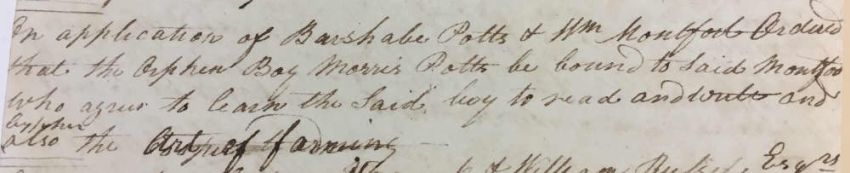 On application of Barshabe Potts & Wm Montfort Ordered
that the Orphen Boy Morris Potts be bound to said Montfor
who agrees to learn the Said boy to read and write and
Orphen
also the Art of farming
& William Esqrs